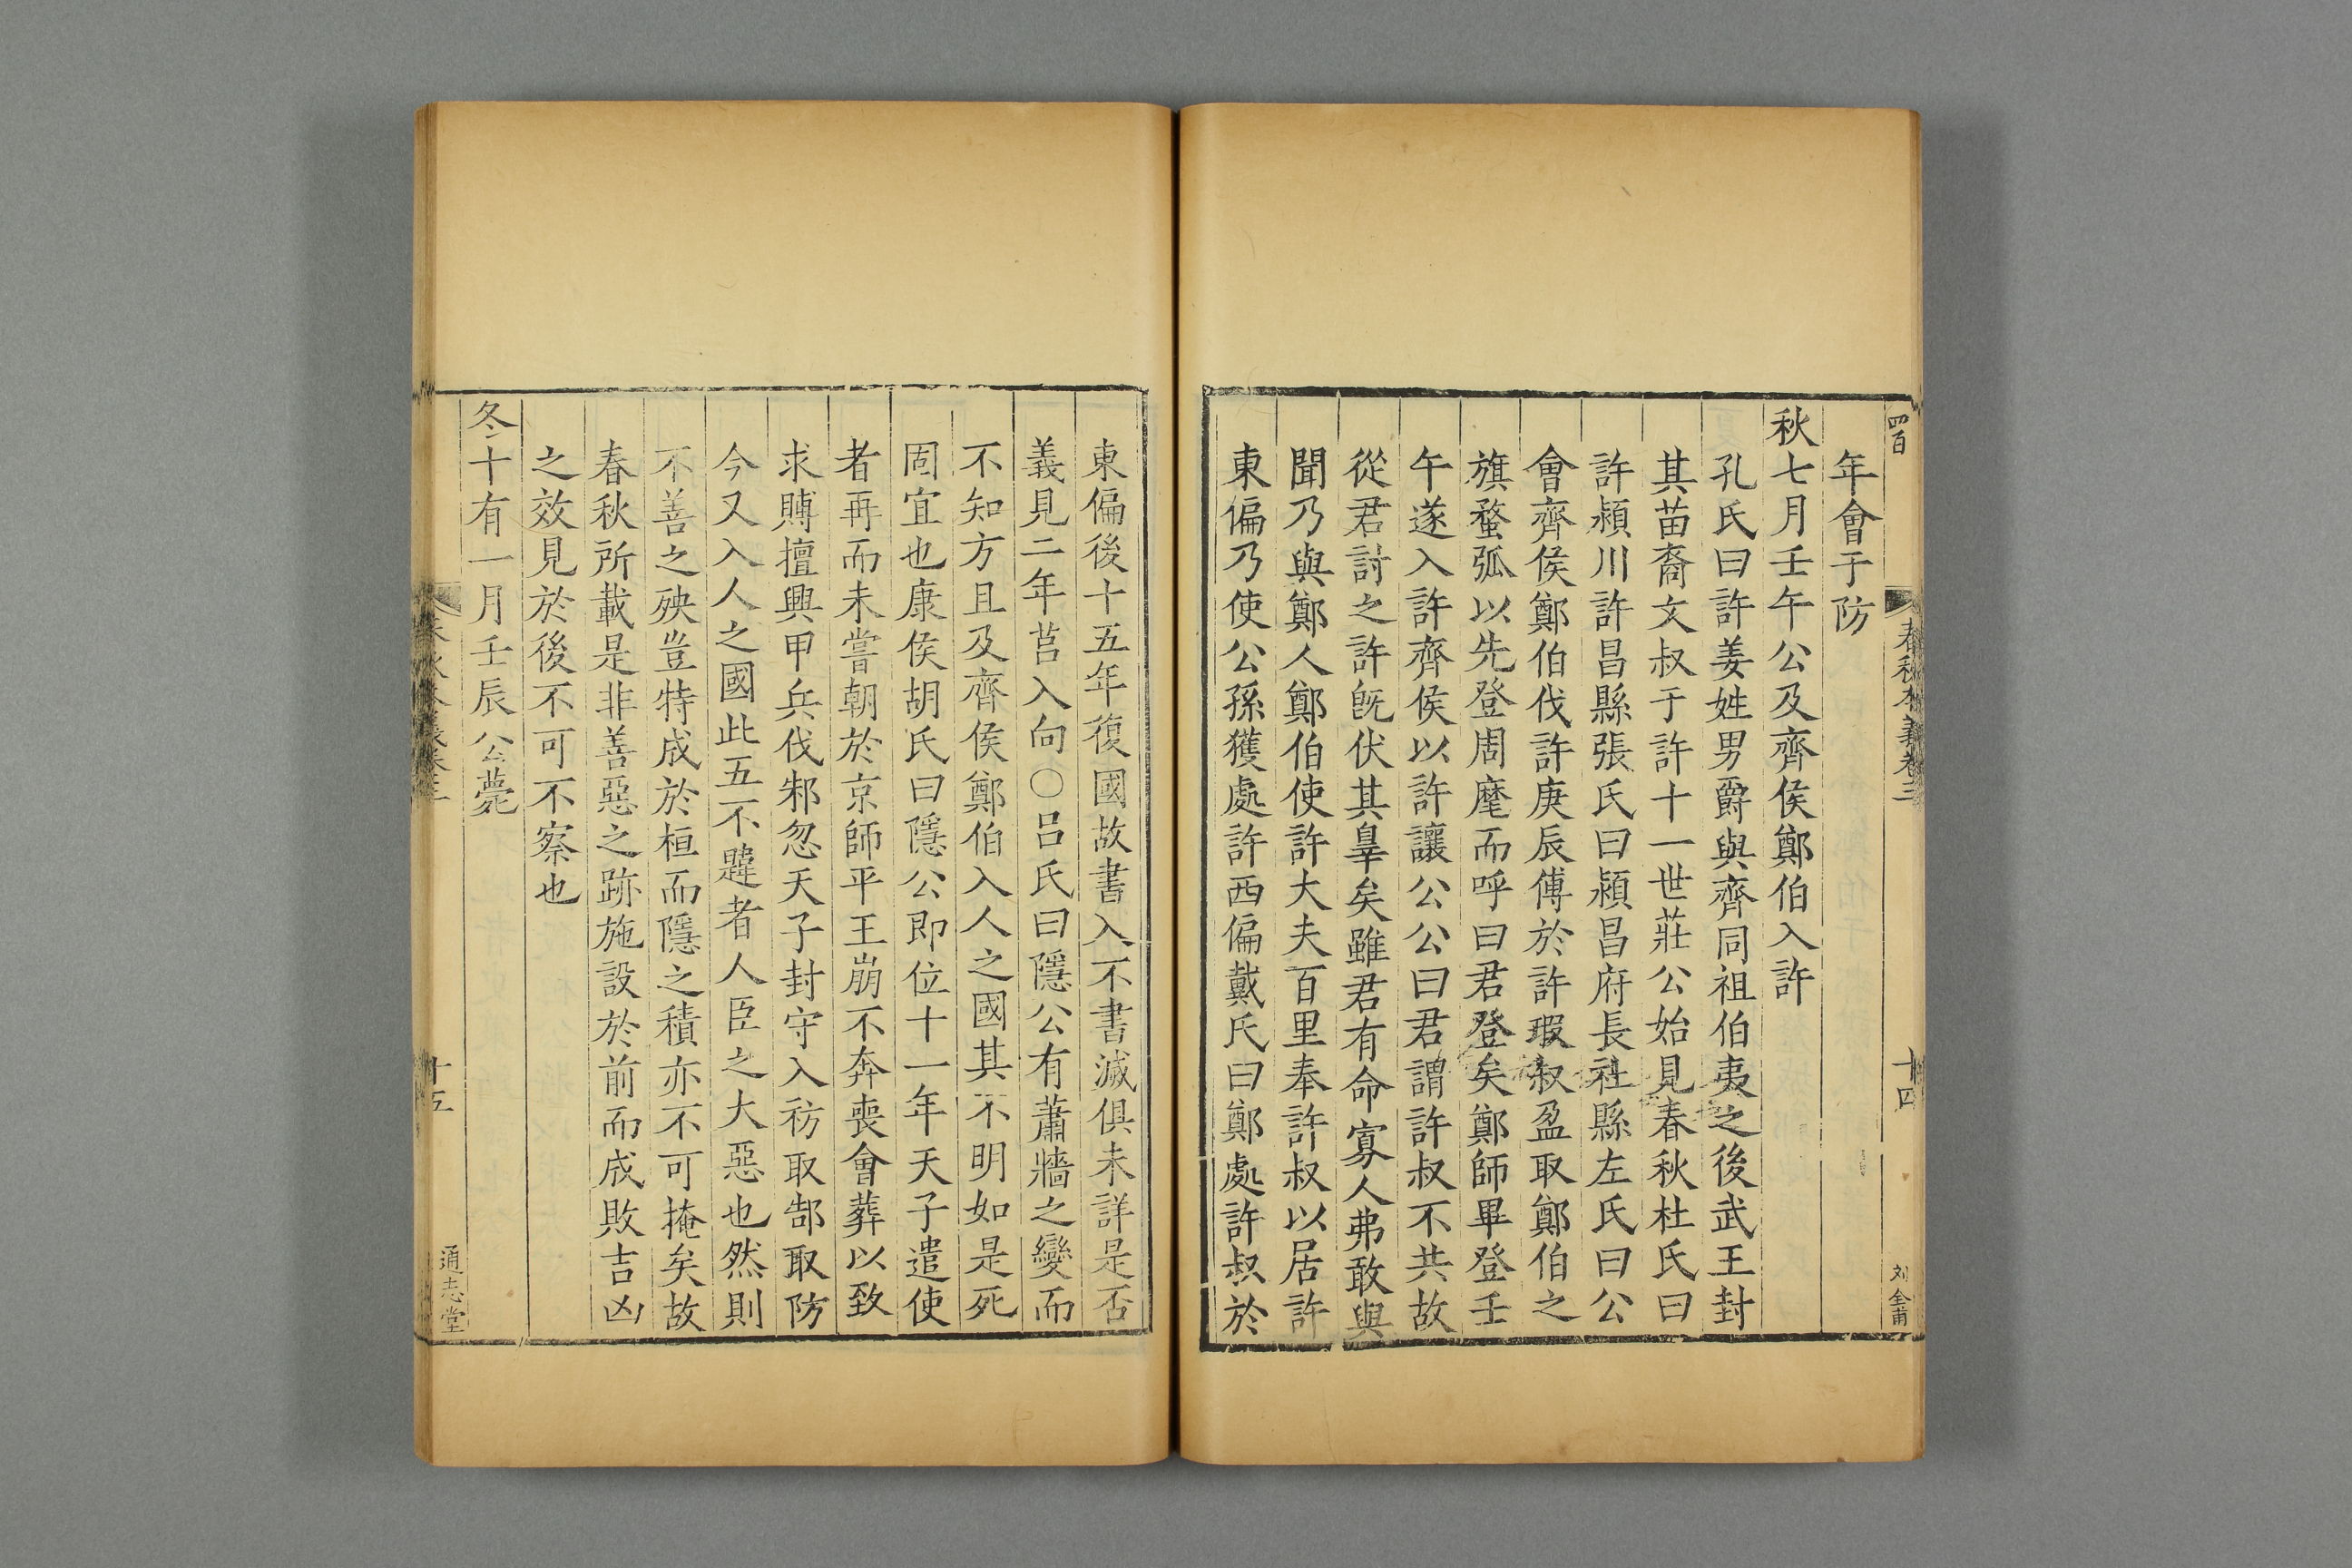 四百
春秋本義卷三
十四
刘全甫
年會于防
秋七月壬午公及齊侯鄭伯入許
孔氏曰許姜姓男爵與齊同祖伯夷之後武王封
其苗裔文叔于許十一世莊公始見春秋杜氏曰
許潁川許昌縣張氏曰潁昌府長社縣左氏曰公
會齊侯鄭伯伐許庚辰傅於許瑕叔盈取鄭伯之
旗蝥弧以先登周麾而呼曰君登矣鄭師畢登壬
午遂入許齊侯以許讓公公曰君謂許叔不共故
從君討之許旣伏其辠矣雖君有命寡人弗敢與
聞乃與鄭人鄭伯使許大夫百里奉許叔以居許
東偏乃使公孫獲處許西偏戴氏曰鄭處許叔於
東偏後十五年復國故書入不書滅俱未詳是否
義見二年莒入向○呂氏曰隱公有蕭牆之變而
不知方且及齊侯鄭伯入人之國其不明如是死
固宜也康侯胡氏曰隱公即位十一年天子遣使
者再而未嘗朝於京師平王崩不奔喪會葬以致
求賻擅興甲兵伐邾忽天子封守入祊取郜取防
今又入人之國此五不韙者人臣之大惡也然則
不善之殃豈特成於桓而隱之積亦不可掩矣故
春秋所載是非善惡之跡施設於前而成敗吉凶
之效見於後不可不察也
冬十有一月壬辰公薨
十五
通志堂